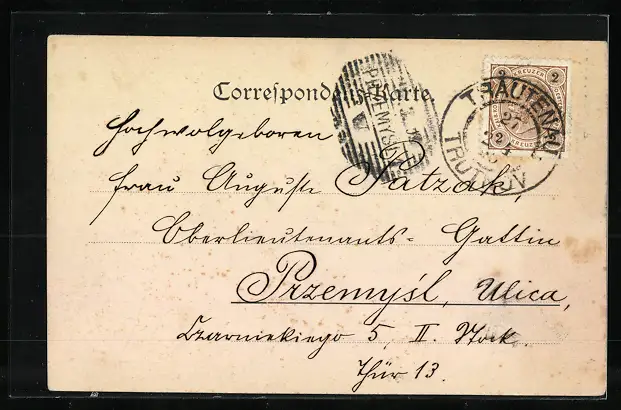 Correspondenz-Karte.
2 KREUZER 2
TRAUTENAU
27
TRUTNOV
PRZEMYŚL
Hochwolgeboren
Frau Auguste Patzak,
Oberlieutenants- Gattin
Przemyśl, Ulica,
Czarniekiego 5, II. Stock.
Thür 13.